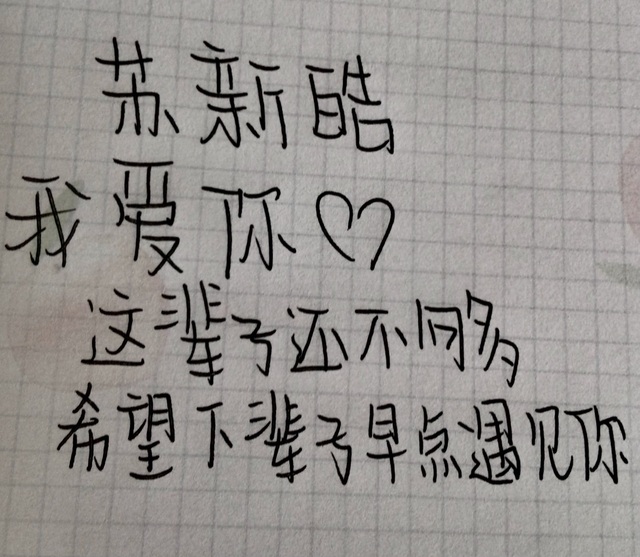 苏新皓
我爱你♡
这辈子还不够
希望下辈子早点遇见你